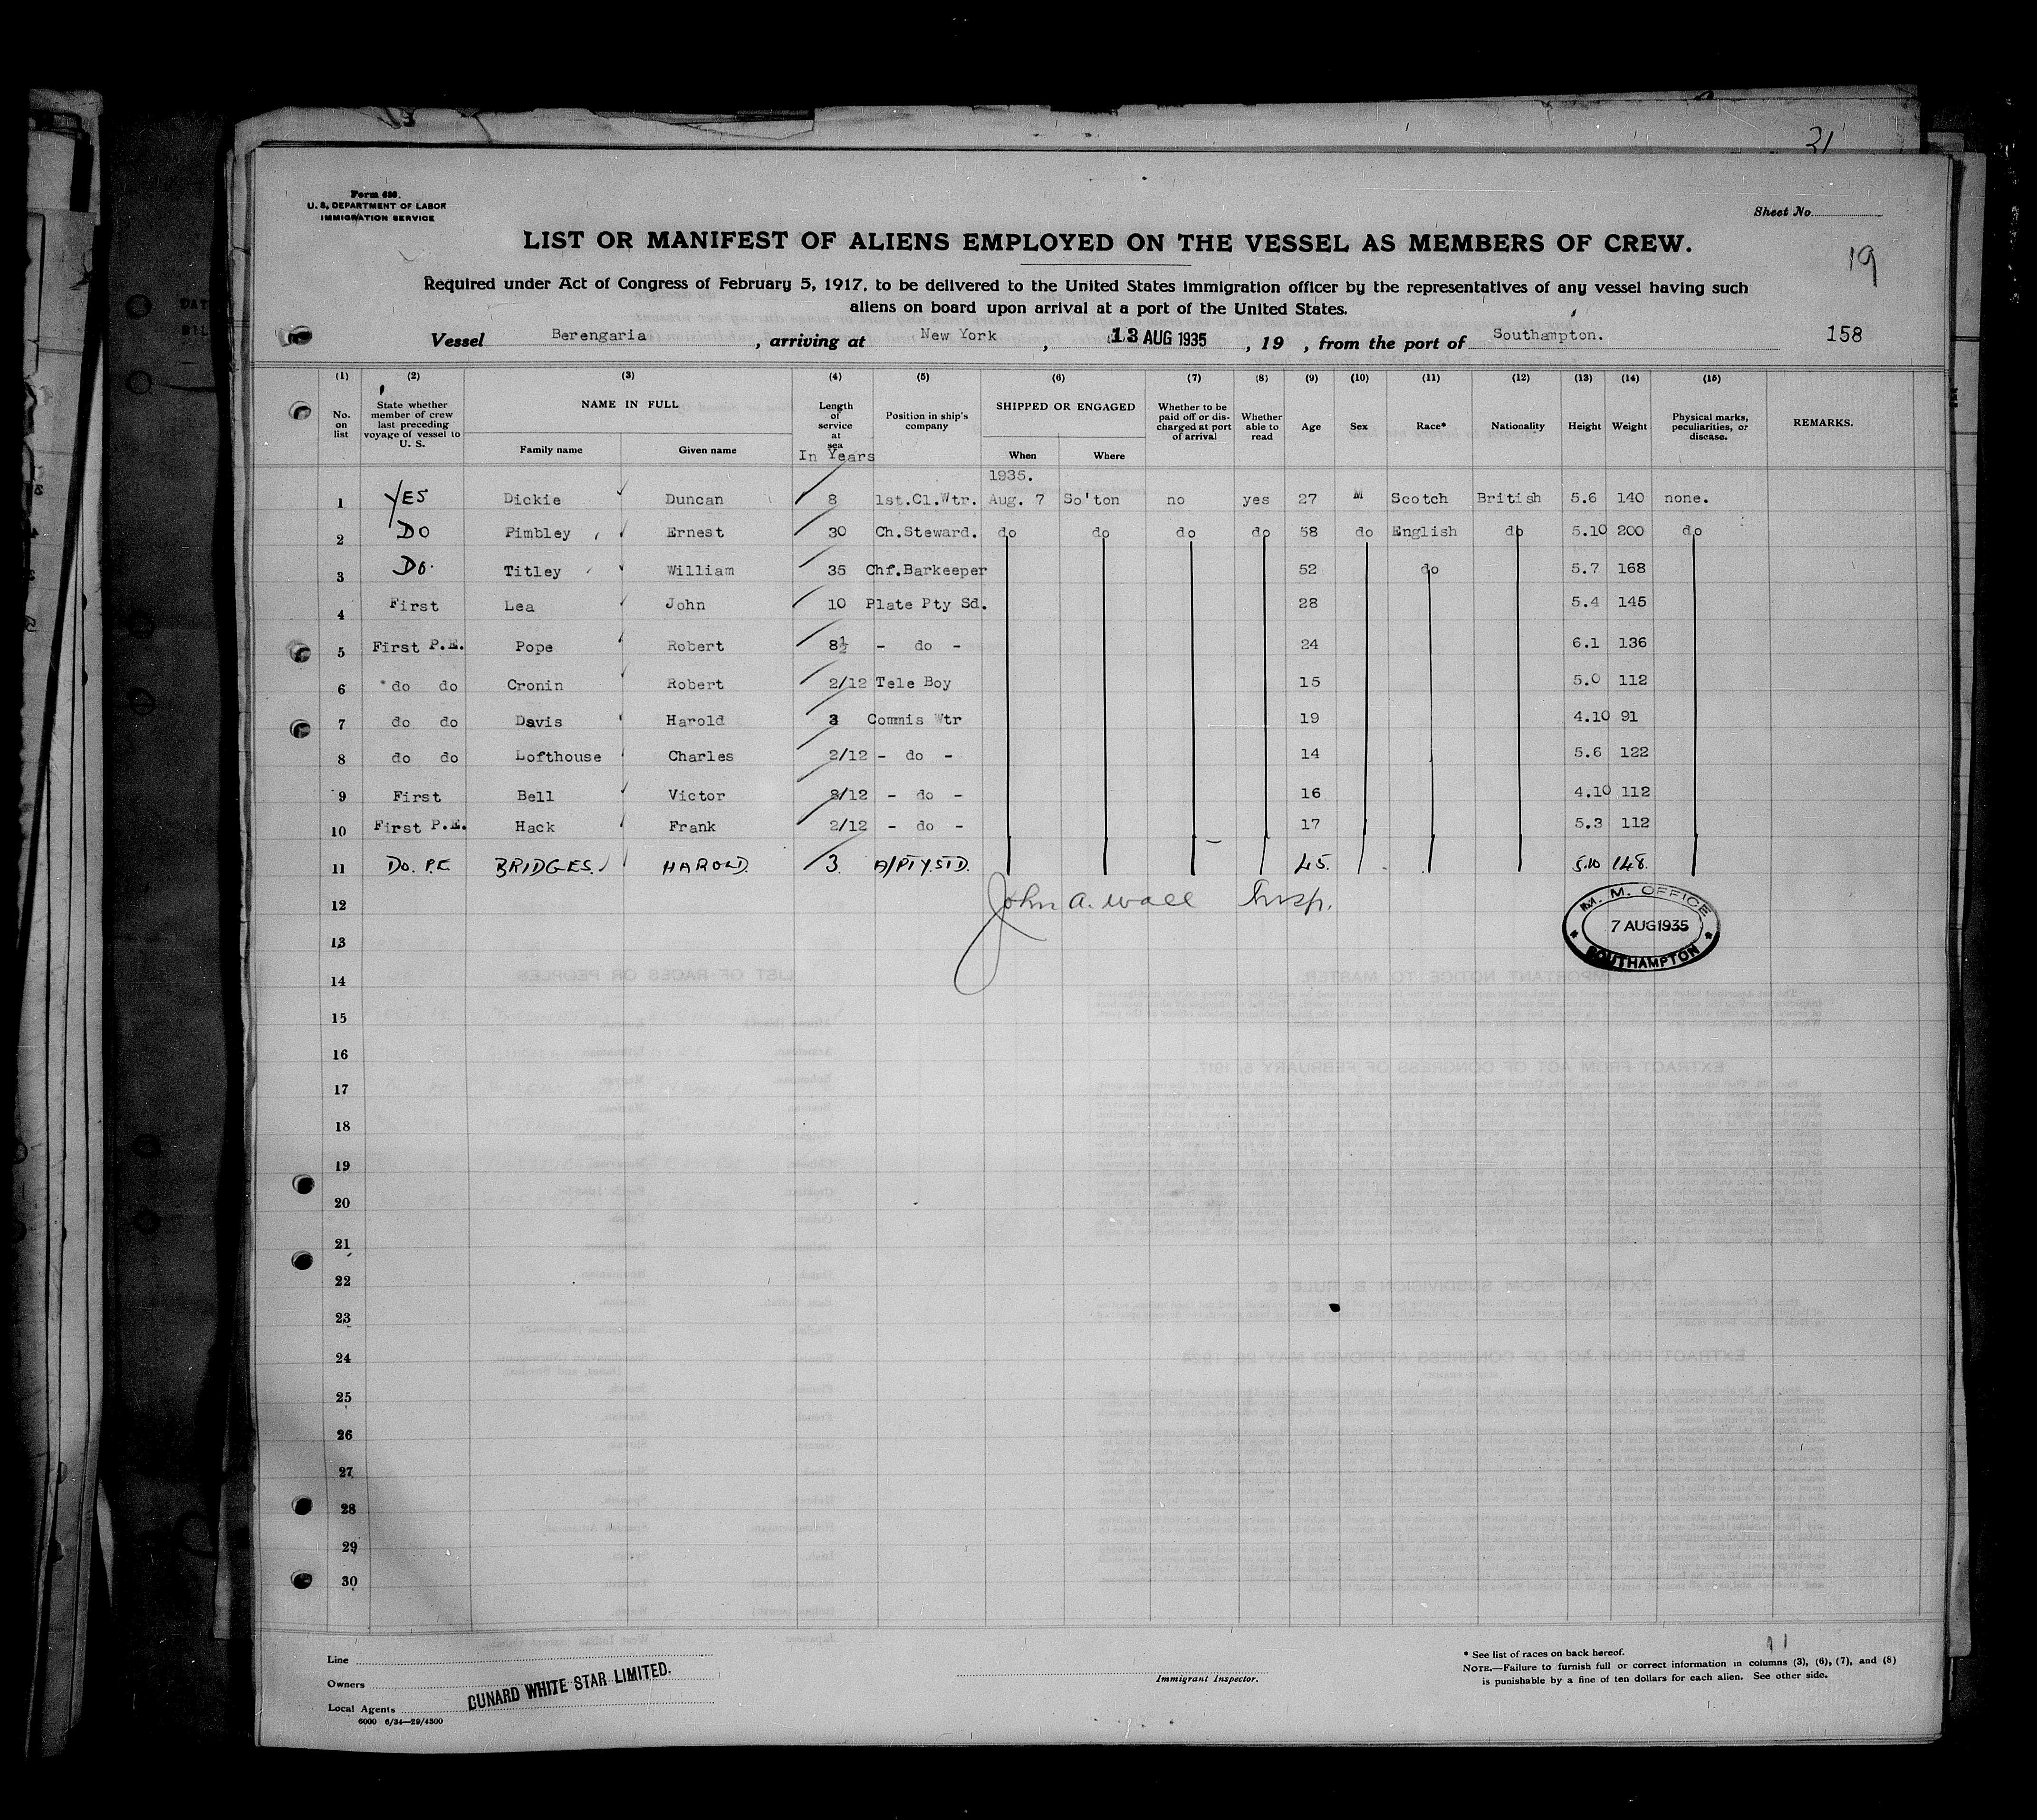 31
Form 680.
U. S. DEPARTMENT OF LABOR
IMMIGRATION SERVICE
Sheet No.
LIST OR MANIFEST OF ALIENS EMPLOYED ON THE VESSEL AS MEMBERS OF CREW.
19
Required under Act of Congress of February 5, 1917, to be delivered to the United States immigration officer by the representatives of any vessel having such
aliens on board upon arrival at a port of the United States.
Vessel Berengaria, arriving at New York, 13 AUG 1935, 19 , from the port of Southampton. 158
(1) (2) (3) (4) (5) (6) (7) (8) (9) (10) (11) (12) (13) (14) (15)
No. on list State whether member of crew last preceding voyage of vessel to U. S. NAME IN FULL Family name Given name Length of service at sea In Years Position in ship's company SHIPPED OR ENGAGED When Where Whether to be paid off or discharged at port of arrival Whether able to read Age Sex Race* Nationality Height Weight Physical marks, peculiarities, or disease. REMARKS.
1935.
1 YES Dickie Duncan 8 1st.Cl.Wtr. Aug. 7 So'ton no yes 27 M Scotch British 5.6 140 none.
2 DO Pimbley Ernest 30 Ch.Steward. do do do do 58 do English do 5.10 200 do
3 DO. Titley William 35 Chf.Barkeeper 52 do 5.7 168
4 First Lea John 10 Plate Pty Sd. 28 5.4 145
5 First P.E. Pope Robert 8½ - do - 24 6.1 136
6 do do Cronin Robert 2/12 Tele Boy 15 5.0 112
7 do do Davis Harold 3 Commis Wtr 19 4.10 91
8 do do Lofthouse Charles 2/12 - do - 14 5.6 122
9 First Bell Victor 8/12 - do - 16 4.10 112
10 First P.E. Hack Frank 2/12 - do - 17 5.3 112
11 DO. P.E BRIDGES. HAROLD. 3. A/PTY.STD. 45. 5.10 148.
12 John A. Wall Insp.
M. M. OFFICE
7 AUG 1935
SOUTHAMPTON
13
14
15
16
17
18
19
20
21
22
23
24
25
26
27
28
29
30
Line
Owners
CUNARD WHITE STAR LIMITED.
Local Agents
6000 6/34—29/4300
Immigrant Inspector.
11
* See list of races on back hereof.
NOTE.—Failure to furnish full or correct information in columns (3), (6), (7), and (8)
is punishable by a fine of ten dollars for each alien. See other side.